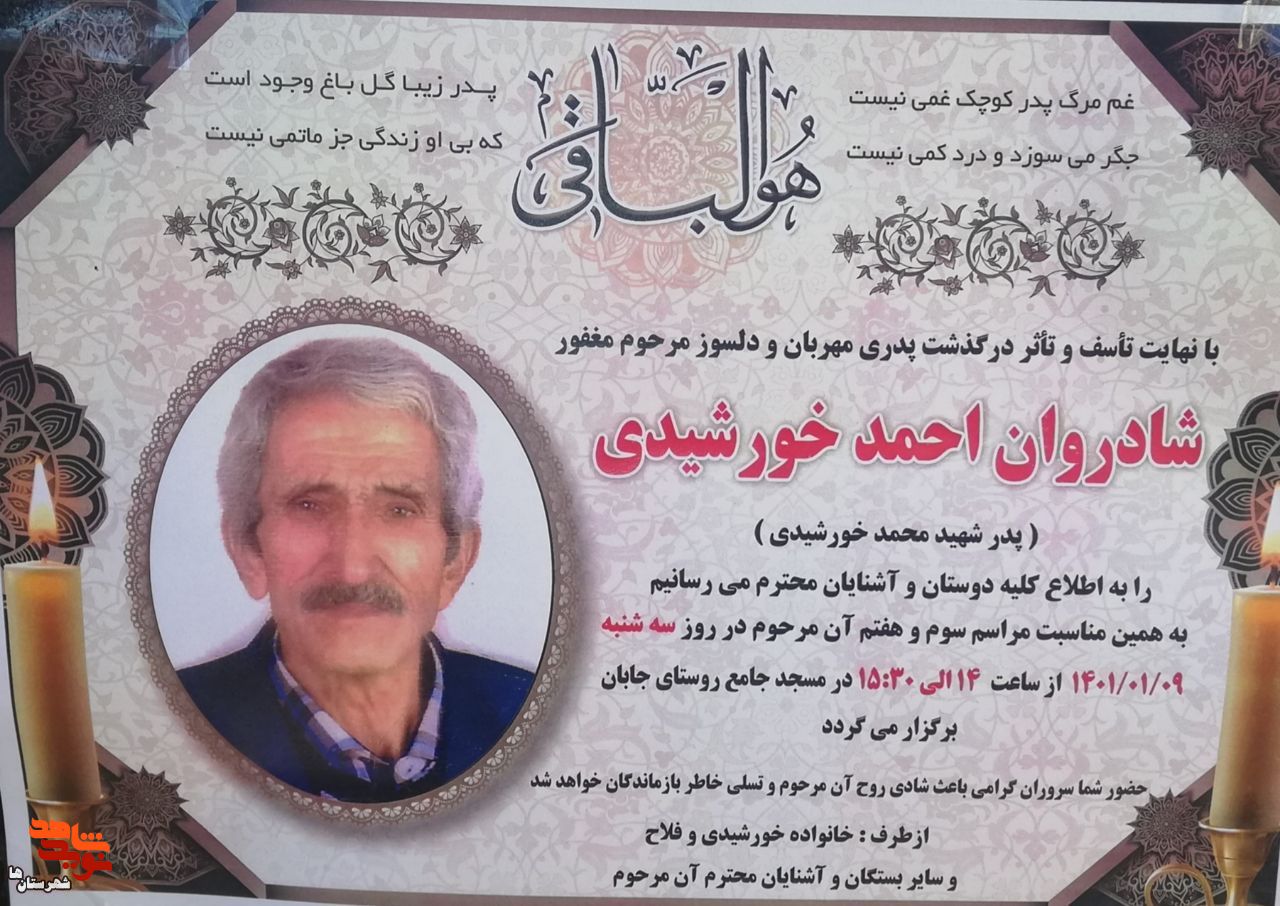 هوالباقی
غم مرگ پدر کوچک غمی نیست
جگر می سوزد و درد کمی نیست
پدر زیبا گل باغ وجود است
که بی او زندگی جز ماتمی نیست
با نهایت تأسف و تأثر درگذشت پدری مهربان و دلسوز مرحوم مغفور
شادروان احمد خورشیدی
( پدر شهید محمد خورشیدی )
را به اطلاع کلیه دوستان و آشنایان محترم می رسانیم
به همین مناسبت مراسم سوم و هفتم آن مرحوم در روز سه شنبه
۱۴۰۱/۰۱/۰۹ از ساعت ۱۴ الی ۱۵:۳۰ در مسجد جامع روستای جابان
برگزار می گردد
حضور شما سروران گرامی باعث شادی روح آن مرحوم و تسلی خاطر بازماندگان خواهد شد
ازطرف : خانواده خورشیدی و فلاح
و سایر بستگان و آشنایان محترم آن مرحوم
نوید شاهد
شهرستان ها